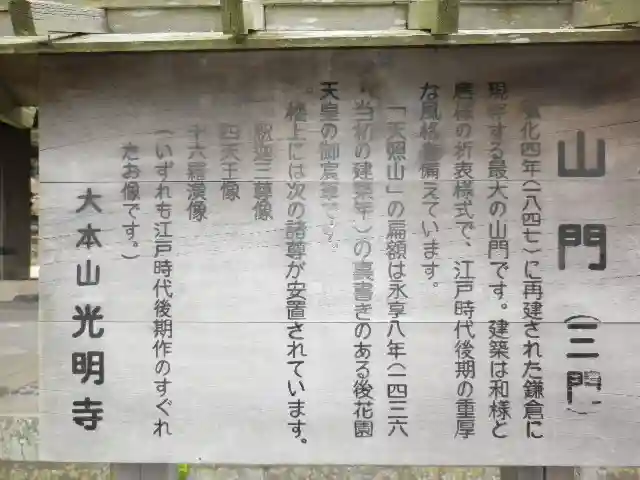 山門(三門)
弘化四年(一八四七)に再建された鎌倉に
現存する最大の山門です。建築は和様と
唐様の折衷様式で、江戸時代後期の重厚
な風格を備えています。
「天照山」の扁額は永享八年(一四三六
・当初の建築年)の裏書きのある後花園
天皇の御宸筆です。
楼上には次の諸尊が安置されています。
釈迦三尊像
四天王像
十六羅漢像
(いずれも江戸時代後期作のすぐれ
たお像です。)
大本山光明寺